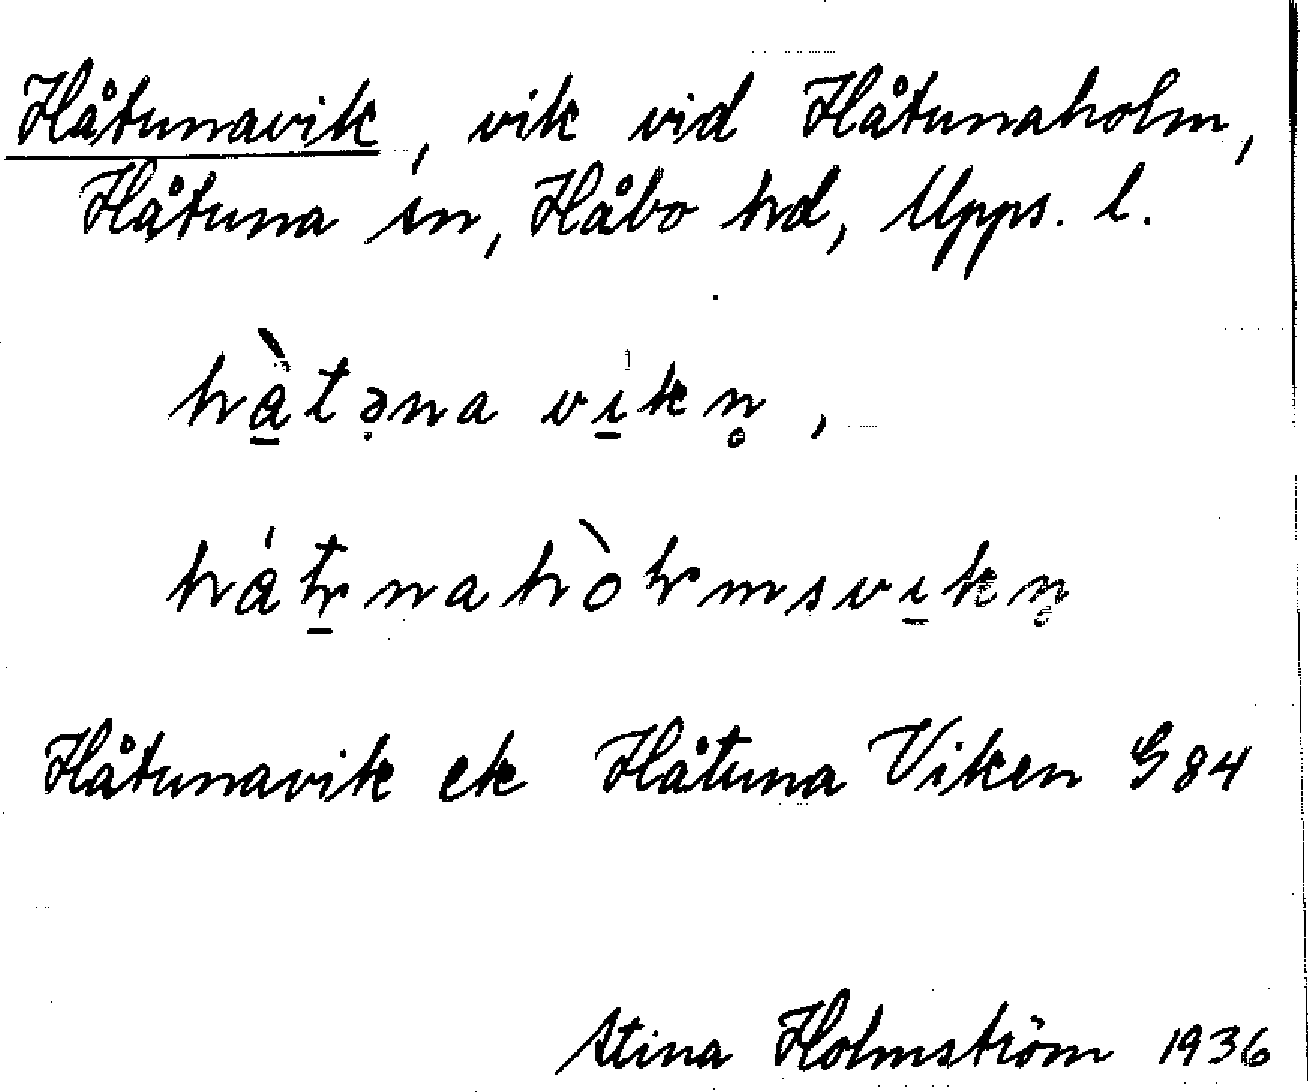 Håtunavik, vik vid Håtunaholm,
Håtuna sn, Håbo hd, Upps. l.
hà̱tə̣na vi̱kn̥,
hátnahòlmsvi̱kn̥
Håtunavik ek Håtuna Viken G 84
Stina Holmström 1936